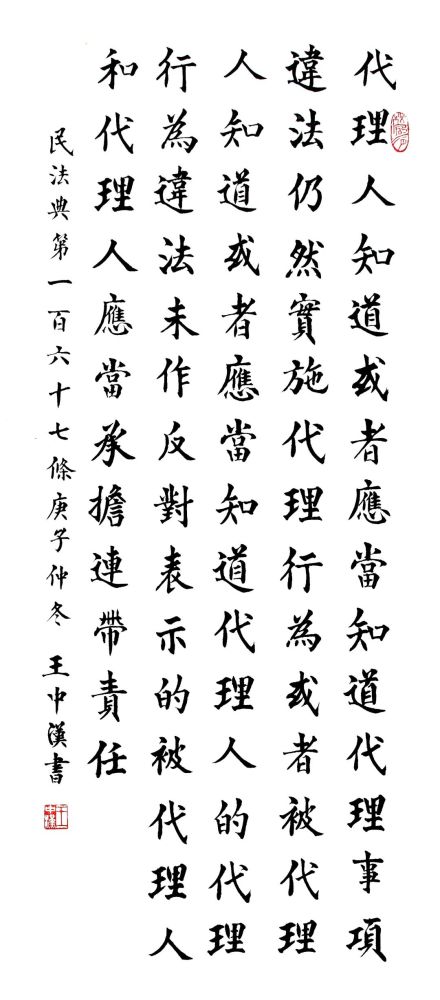 代理人知道或者應當知道代理事項
違法仍然實施代理行為或者被代理
人知道或者應當知道代理人的代理
行為違法未作反對表示的被代理人
和代理人應當承擔連帶責任
民法典第一百六十七條庚子仲冬 王中漢書